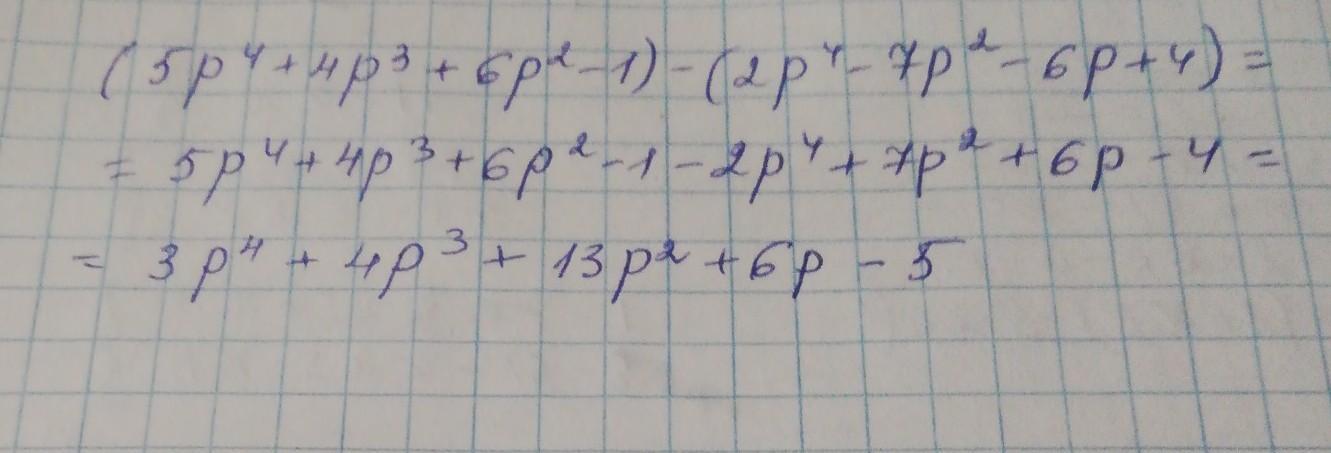 (5p⁴+4p³+6p²-1)-(2p⁴-7p²-6p+4)=
= 5p⁴+4p³+6p²-1-2p⁴+7p²+6p-4=
= 3p⁴+4p³+13p²+6p-5